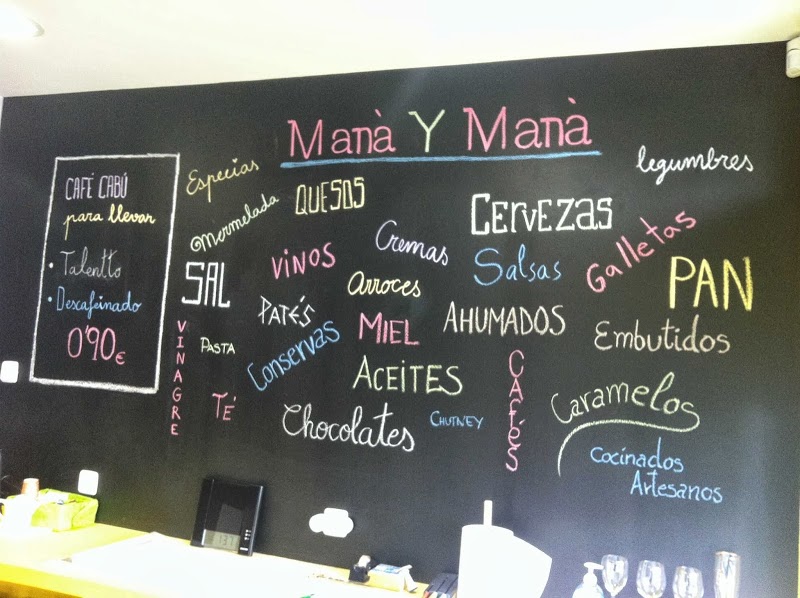 Manà Y Manà
CAFÉ CABÚ
para llevar
• Talentto
• Descafeinado
0'90€
Especias
Mermelada
QUESOS
legumbres
CERVEZAS
Cremas
Salsas
Galletas
PAN
SAL
VINOS
Arroces
PATÉS
MIEL
AHUMADOS
Embutidos
VINAGRE
PASTA
Conservas
ACEITES
CAFÉS
Caramelos
TÉ
Chocolates
CHUTNEY
Cocinados
Artesanos